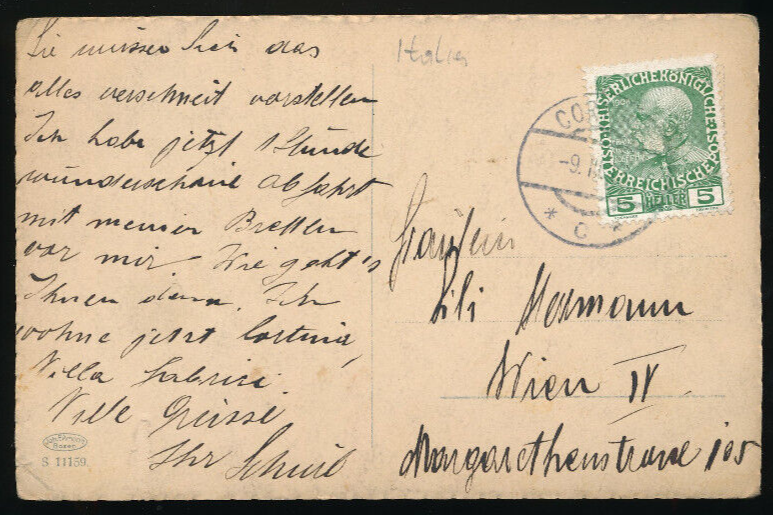 Sie müssen sich das
alles verschneit vorstellen
Ich habe jetzt 1 Stunde
wunderschöne Abfahrt
mit meinen Brettln
vor mir. Wie geht's
Ihnen denn. Ich
wohne jetzt Cortina,
Villa
Viele Grüsse
Ihr
S 11159.
Italien
COR
-9.
* C *
KAISERLICHE KÖNIGLICHE
ÖSTERREICHISCHE POST
5 HELLER 5
Fräulein
Lili
Wien IV
Margarethenstrasse 105